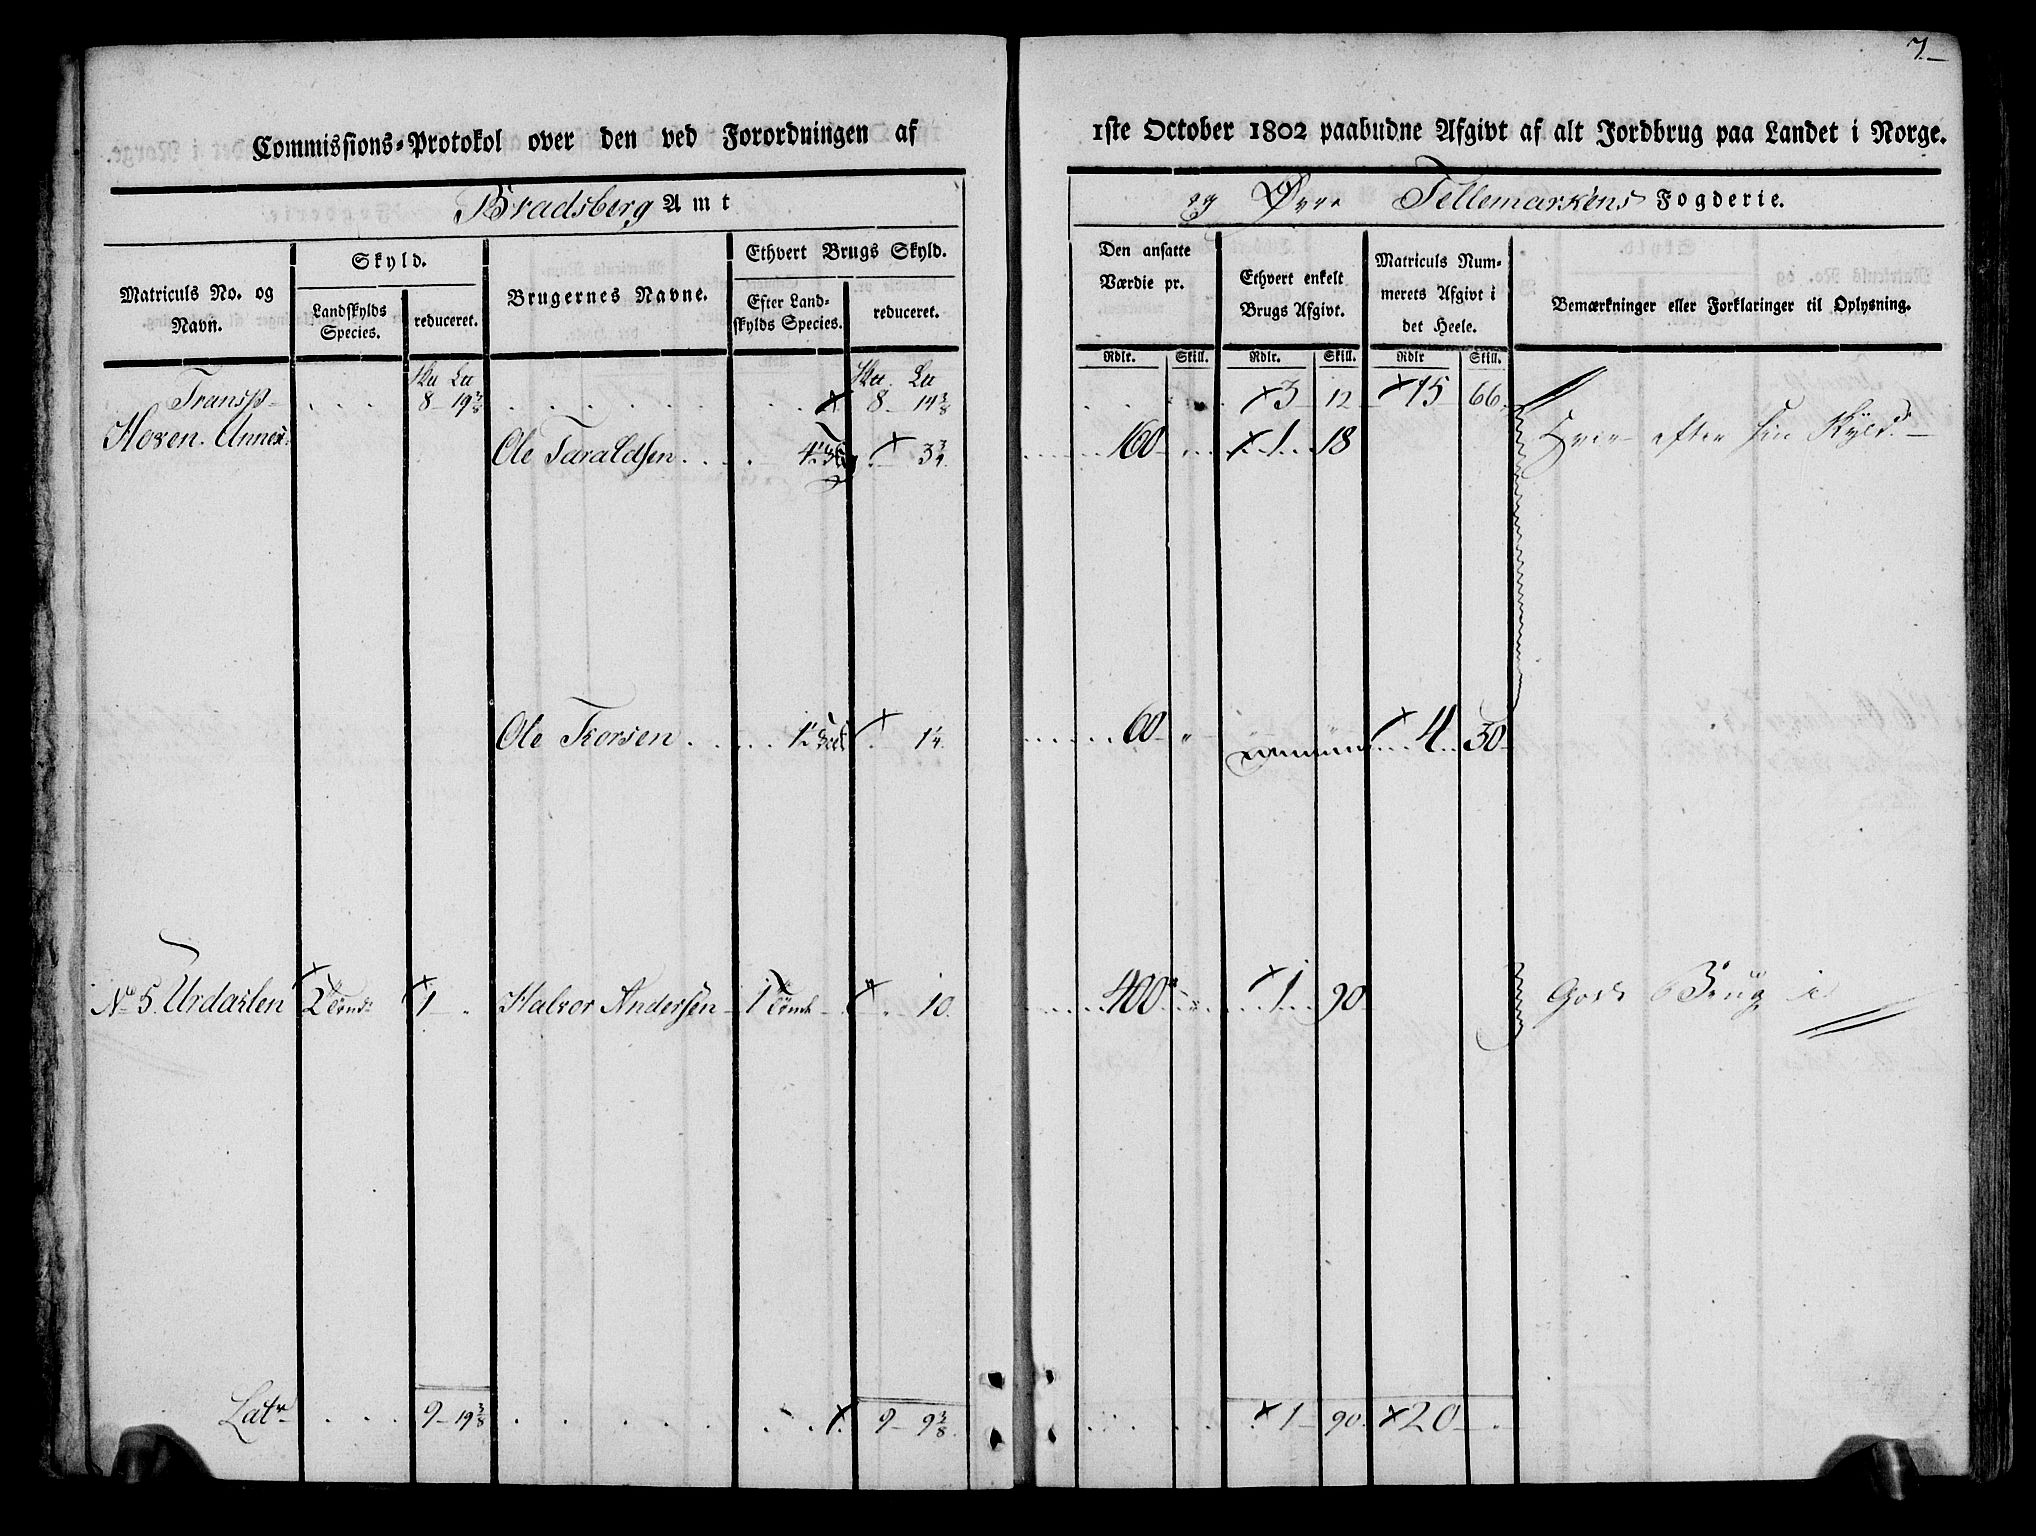 7.
Commissions-Protokol over den ved Forordningen af 1ste October 1802 paabudne Afgivt af alt Jordbrug paa Landet i Norge.
Bradsberg Amt og Øvre Tellemarkens Fogderie.
Matriculs No. og Navn.
Skyld.
Landskylds Species.
reduceret.
Brugernes Navne.
Ethvert Brugs Skyld.
Efter Landskylds Species.
reduceret.
Den ansatte Værdie pr.
Ethvert enkelt Brugs Afgivt.
Matriculs Nummerets Afgivt i det Heele.
Bemærkninger eller Forklaringer til Oplysning.
Rdlr. Skill. Rdlr. Skill. Rdlr Skill.
Transp. 8 19 3/8 8 14 3/8 3 12 15 66
Hoven. Annex. Ole Taraldsen 3 3/4 160 1 18 efter sin Skyld.
Ole Torsen 1 1/4 60 " 4 30
No 5. Urdarlen 2 1 Halvor Andersen 1 10 400 1 90 Godt Brug
Latr 9 19 3/8 9 9 3/8 1 90 20